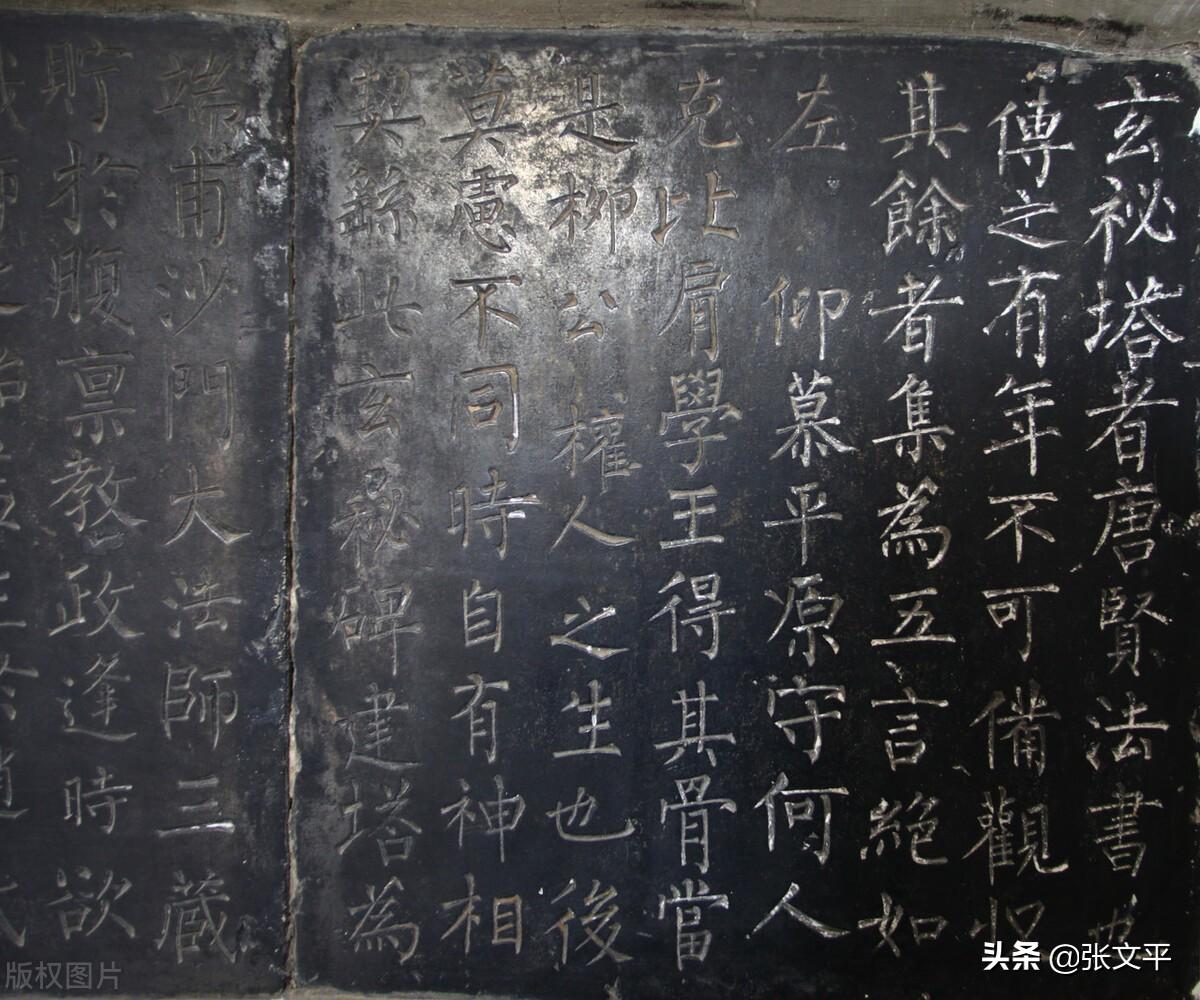 玄祕塔者唐賢法書也
傳之有年不可備觀
其餘者集為五言絕如
左 仰慕平原守何人
克比肩學王得其骨當
是柳公權人之生也後
莫慮不同時自有神相
契繇此玄祕碑建塔為
端甫沙門大法師三藏
貯於腹禀教政逢時欲
头条 @张文平
版权图片